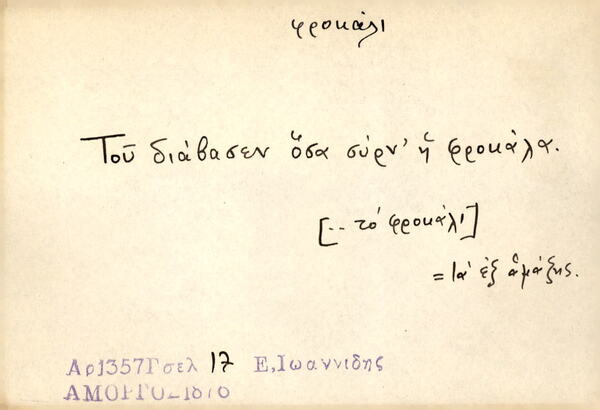 φροκάλι
Τοῦ διάβασεν ὅσα σύρν' ἡ φροκάλα.
[.. τὸ φροκάλι]
= τὰ ἐξ ἁμάξης.
Αρ1357Γσελ 17 Ε,Ιωαννιδης
ΑΜΟΡΓΟΣ1876